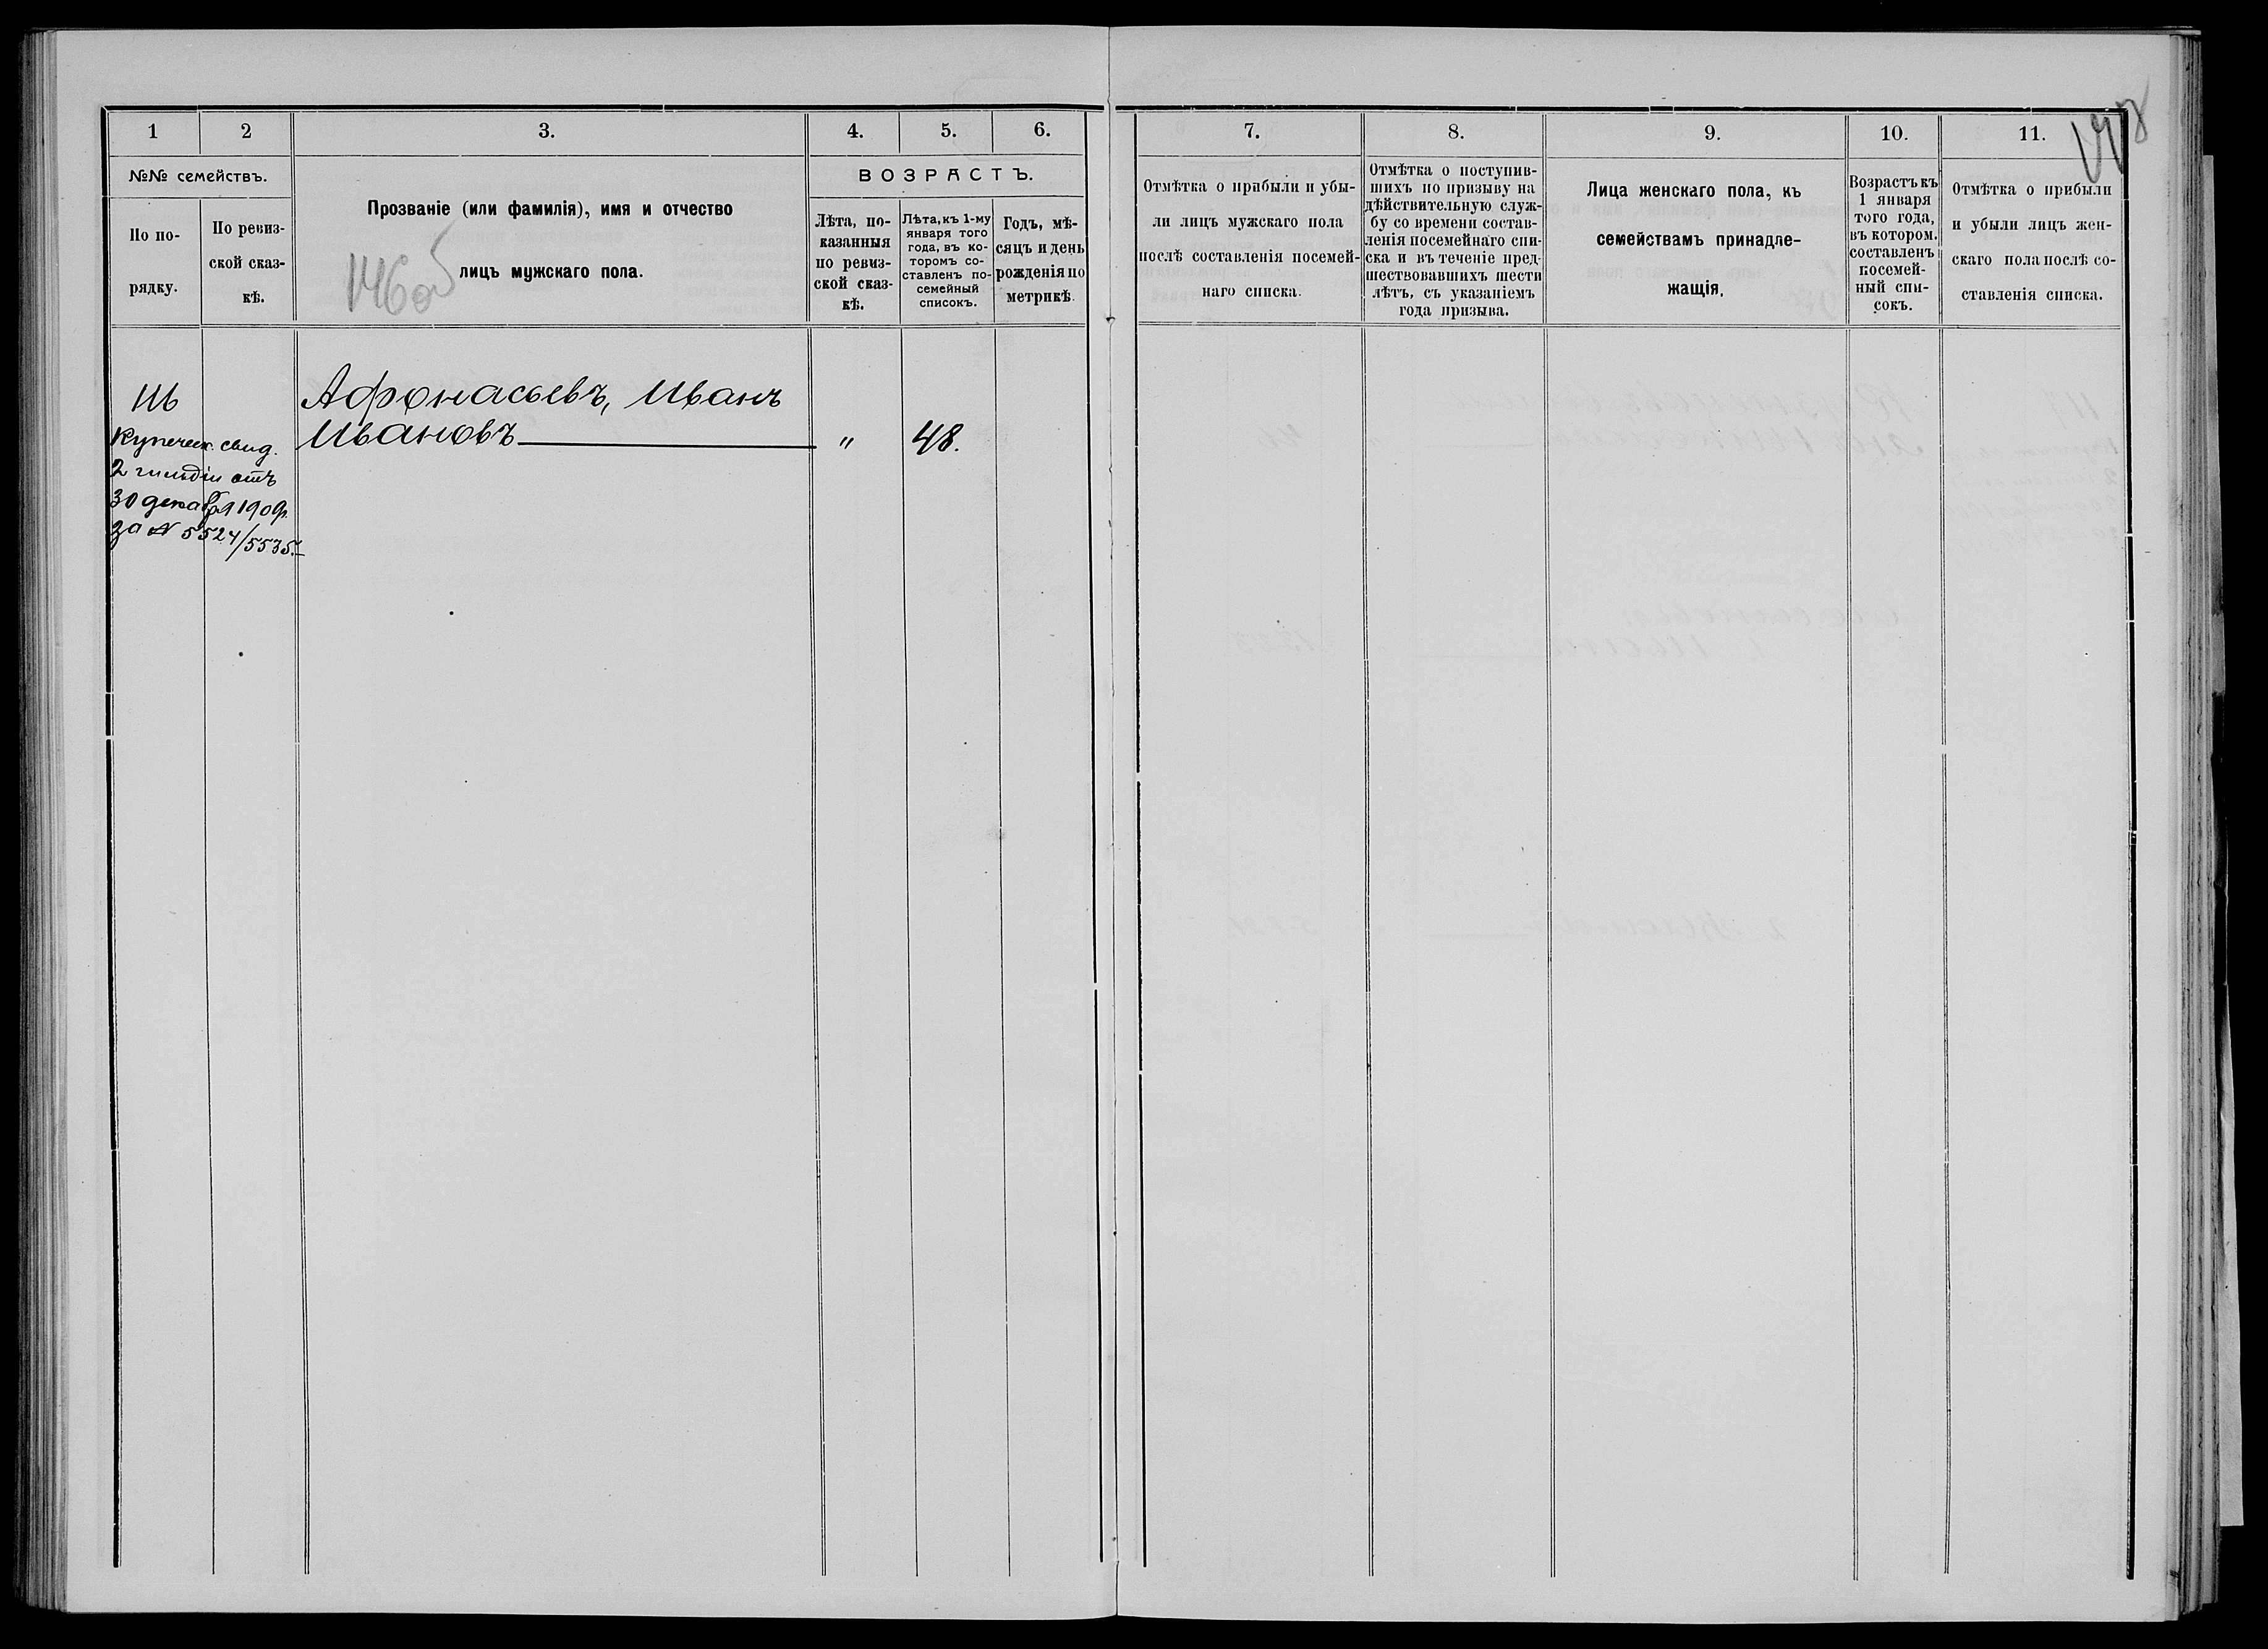 1 2 3. 4. 5. 6.
№№ семействъ.
По по-
рядку.
По ревиз-
ской сказ-
кѣ.
Прозваніе (или фамилія), имя и отчество
лицъ мужскаго пола.
146об
ВОЗРАСТЪ.
Лѣта, по-
казанныя
по ревиз-
ской сказ-
кѣ.
Лѣта, къ 1-му
января того
года, въ ко-
торомъ со-
ставленъ по-
семейный
списокъ.
Годъ, мѣ-
сяцъ и день
рожденія по
метрикѣ.
116
Купеческ. свид.
2 гильдіи отъ
30 декабря 190
за № 5524/5535.
Афонасьевъ, Иванъ
Ивановъ
" 48.
7. 8. 9. 10. 11.
Отмѣтка о прибыли и убы-
ли лицъ мужскаго пола
послѣ составленія посемей-
наго списка.
Отмѣтка о поступив-
шихъ по призыву на
дѣйствительную служ-
бу со времени состав-
ленія посемейнаго спи-
ска и въ теченіе пред-
шествовавшихъ шести
лѣтъ, съ указаніемъ
года призыва.
Лица женскаго пола, къ
семействамъ принадле-
жащія.
Возрастъ къ
1 января
того года,
въ котором.
составленъ
посемей-
ный спи-
сокъ.
Отмѣтка о прибыли
и убыли лицъ жен-
скаго пола послѣ со-
ставленія списка.